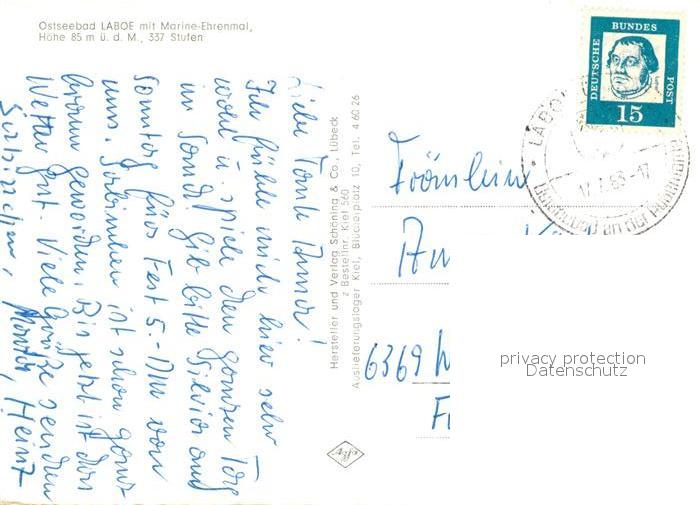 Ostseebad LABOE mit Marine-Ehrenmal,
Höhe 85 m ü. d. M., 337 Stufen
Liebe Tante Anna!
Ich fühle mich hier sehr
wohl u. spiele den ganzen Tag
im Sand. Gib bitte Silvia am
Sonntag fürs Fest 5.-DM von
uns. Sabinchen ist schon ganz
braun geworden. Bis jetzt ist das
Wetter gut. Viele Grüße senden
Heinz
Hersteller und Verlag Schöning & Co., Lübeck
z Bestellnr. Kiel 560
Auslieferungslager Kiel, Blücherplatz 10, Tel. 4 60 26
Agfa
DEUTSCHE
BUNDES
POST
15
LABOE
17
Fräulein
An
6369
privacy protection
Datenschutz